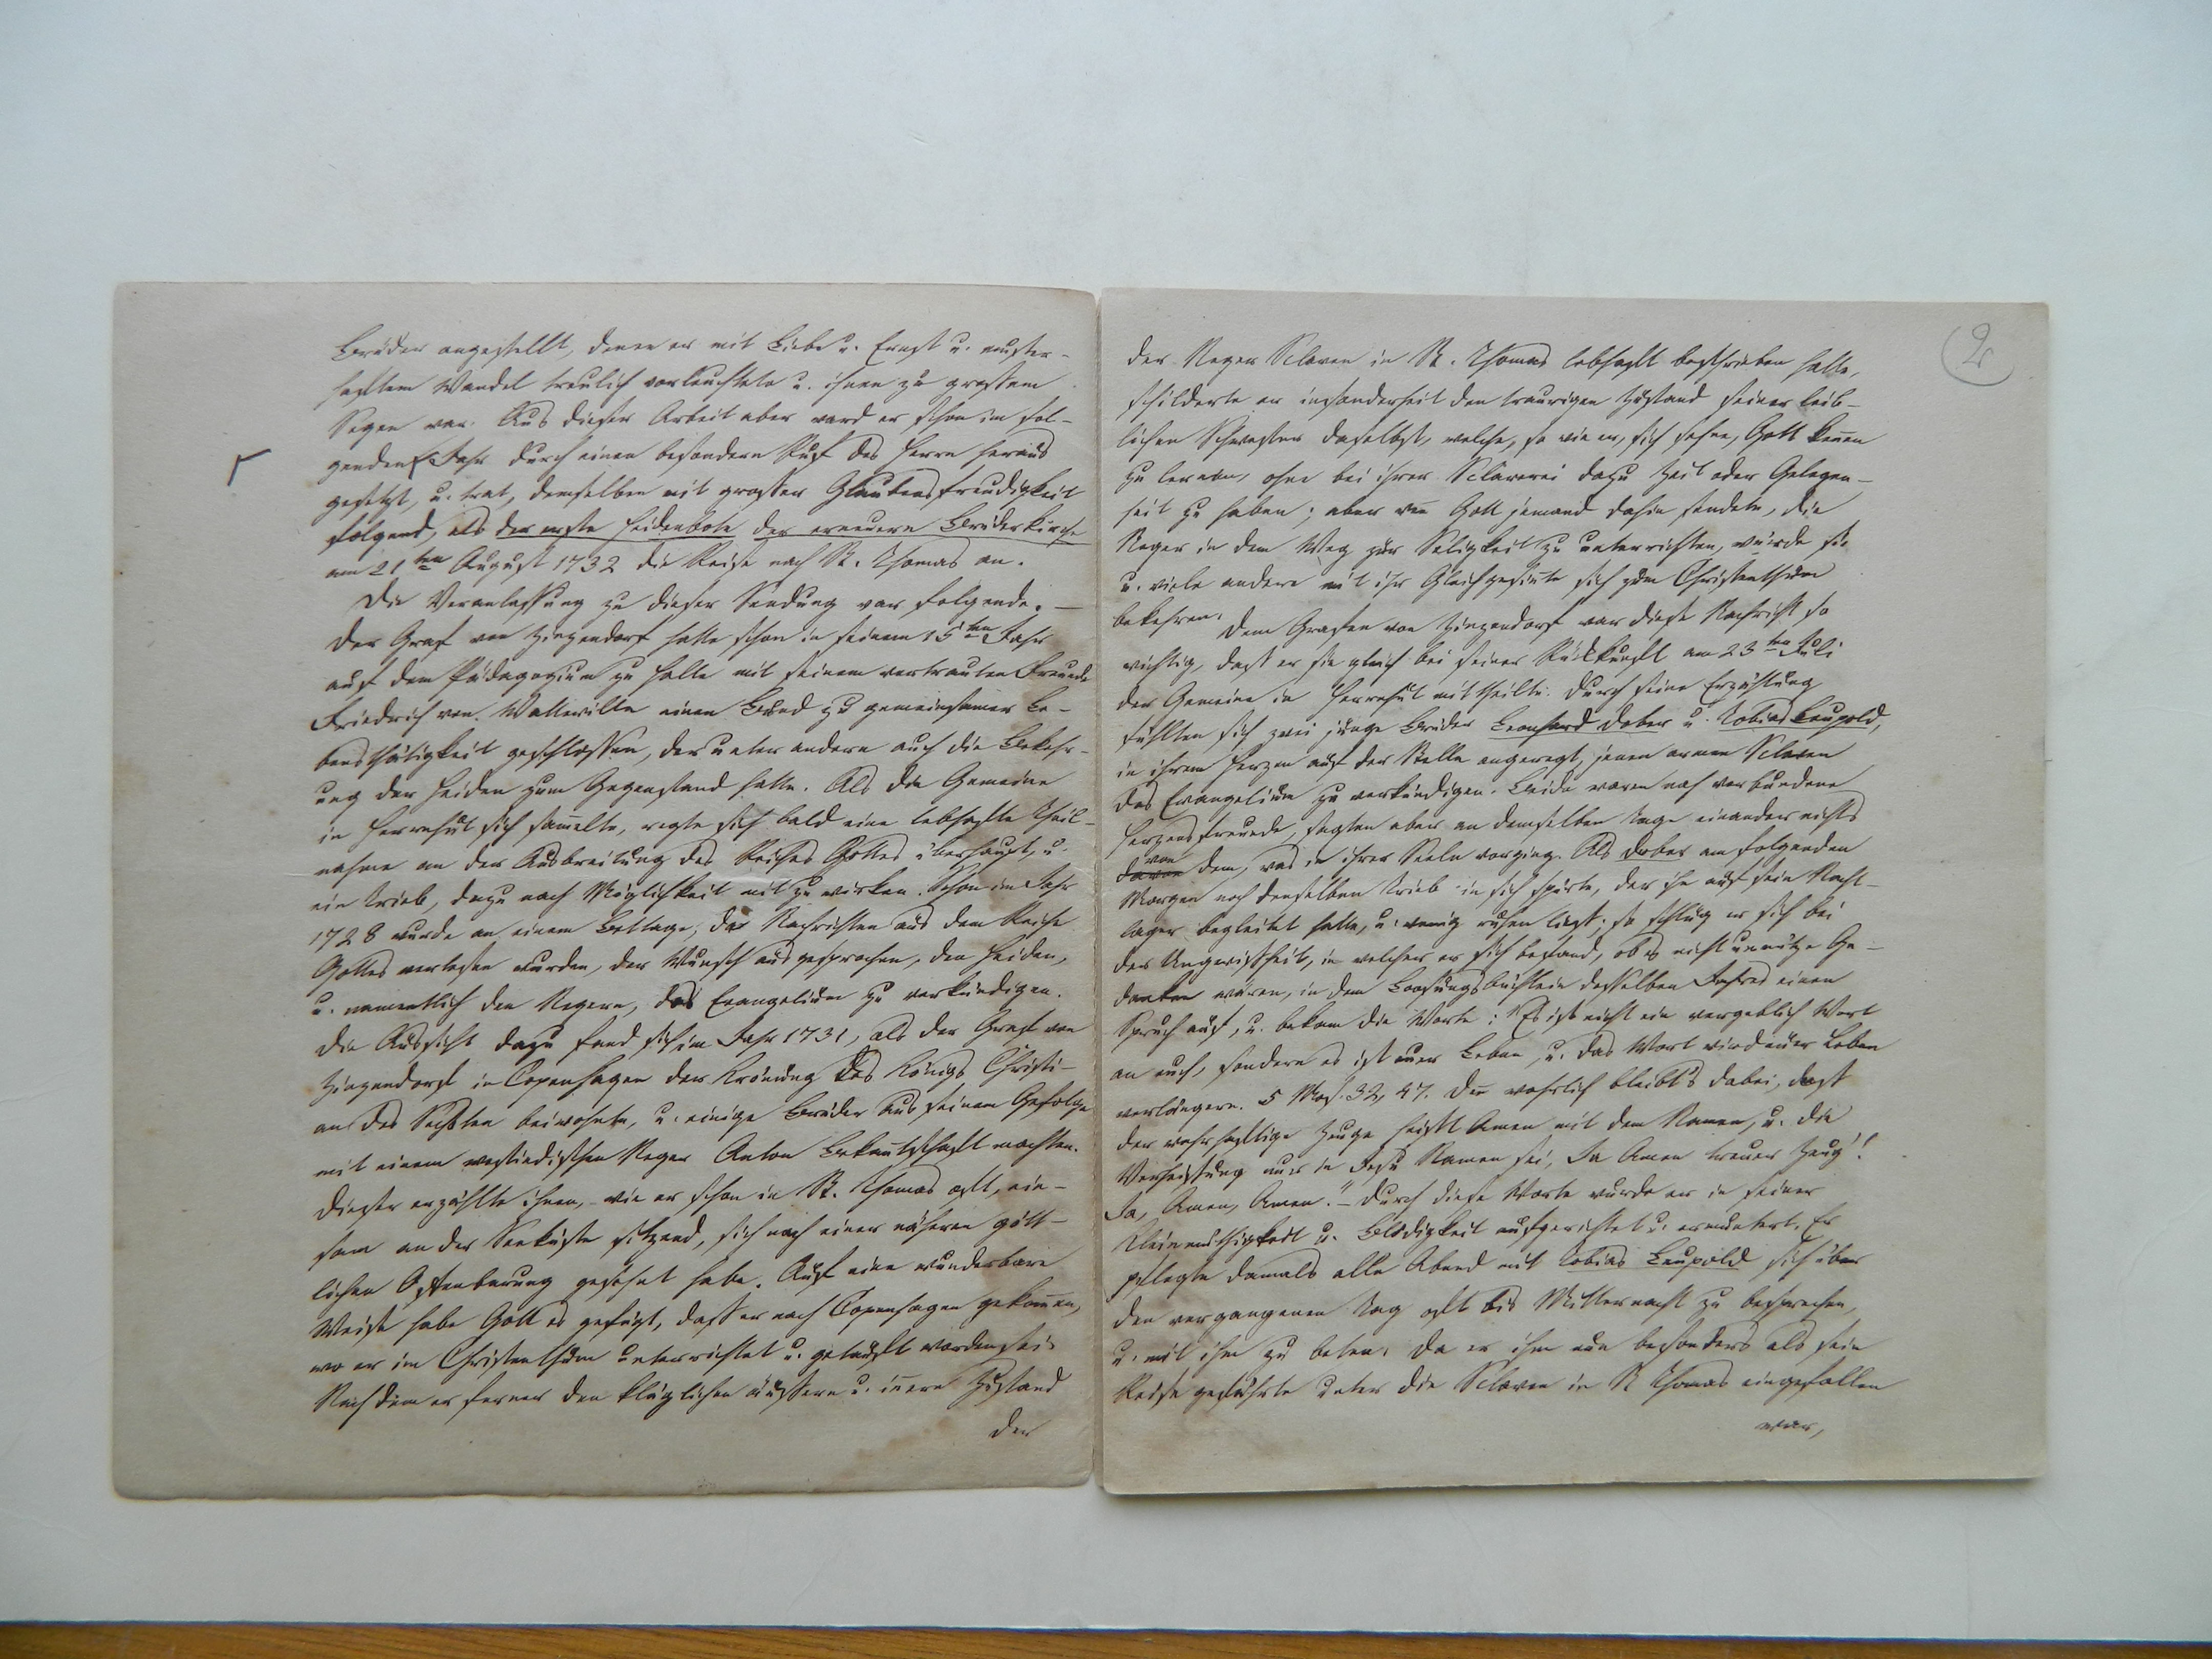 Brüder angestellt, denen er mit Liebe u. Ernst u. muster-
haftem Wandel treulich vorleuchtete u. ihnen zu grossem
Segen war. Aus dieser Arbeit aber ward er schon im fol-
genden Jahr durch einen besondern Ruf des Herrn heraus
gesetzt, u. trat, demselben mit grosser Glaubensfreudigkeit
folgend, als der erste Heidenbote der erneuern Brüderkirche
am 21ten August 1732 die Reise nach St. Thomas an.
Die Veranlassung zu dieser Sendung war folgende. –
Der Graf von Zinzendorf hatte schon in seinem 15ten Jahr
auf dem Pädagogium zu Halle mit seinem vertrauten Freunde
Friedrich von Wattewille einen Bund zu gemeinsamer Le-
bensthätigkeit geschlossen, der unter andern auch die Bekehr-
ung der Heiden zum Gegenstand hatte. Als die Gemeine
in Herrnhut sich sam̄elte, regte sich bald eine lebhafte Theil-
nahme an der Ausbreitung des Reiches Gottes überhaupt, u.
ein Trieb, dazu nach Möglichkeit mit zu wirken. Schon im Jahr
1728 wurde an einem Bettage, da Nachrichten aus dem Reiche
Gottes verlesen wurden, der Wunsch ausgesprochen, den Heiden,
u. namentlich den Negern, das Evangelium zu verkündigen.
Die Aussicht dazu fand sich im Jahr 1731, als der Graf von
Zinzendorf in Copenhagen der Krönung des Königs Christi-
an des Sechsten beiwohnte, u. einige Brüder aus seinem Gefolge
mit einem westindischen Neger Anton Bekan̄tschaft machten.
Dieser erzählte ihnen, wie er schon in St. Thomas oft, ein-
sam an der Seeküste sitzend, sich nach einer nähern gött-
lichen Offenbarung gesehnt habe. Auf eine wunderbare
Weise habe Gott es gefügt, dass er nach Copenhagen gekom̄en,
wo er im Christenthum unterrichtet u. getauft worden sei.
Nachdem er ferner den kläglichen äussern u. in̄ern Zustand
der
2
der Neger Sclaven in St. Thomas lebhaft beschrieben hatte,
schilderte er insonderheit den traurigen Zustand seiner leib-
lichen Schwester daselbst, welche, so wie er, sich sehne, Gott ken̄en
zu lernen, ohne bei ihrer Sclaverei dazu Zeit oder Gelegen-
heit zu haben; aber wen̄ Gott jemand dahin sendete, die
Neger in dem Weg zur Seligkeit zu unterrichten, würde sie
u. viele andere mit ihr Gleichgesin̄te sich zum Christenthum
bekehren.
Dem Grafen von Zinzendorf war diese Nachricht so
wichtig, dass er sie gleich bei seiner Rückkunft am 23ten Juli
der Gemeine in Herrnhut mittheilte. Durch seine Erzählung
fühlten sich zwei junge Brüder Leonhard Dober u. Tobias Leupold,
in ihrem Herzen auf der Stelle angeregt, jenen armen Sclaven
das Evangelium zu verkündigen. Beide waren nah verbundene
Herzensfreunde, sagten aber an demselben Tage einander nichts
von
davon dem, was in ihrer Seele vorging. Als Dober am folgenden
Morgen noch denselben Trieb in sich spürte, der ihn auf sein Nacht-
lager begleitet hatte, u. wenig ruhen liess; so schlug er sich bei
der Ungewissheit, in welcher er sich befand, ob es nicht unnütze Ge-
danken wären, in dem Loosungsbüchlein desselben Jahres einen
Spruch auf, u. bekam die Worte: "Es ist nicht ein vergeblich Wort
an euch, sondern es ist euer Leben, u. das Wort wird euer Leben
verlängern. 5 Mos. 32, 47. Den̄ wahrlich bleibt's dabei, dass
der wahrhaftige Zeuge heisst Amen mit dem Namen, u. die
Verheissung nur in Jesu Namen sei, Ja Amen treuer Zeug'!
Ja, Amen, Amen." – Durch diese Worte wurde er in seiner
Kleinmüthigkeit u. Blödigkeit aufgerichtet u. ermuntert. Er
pflegte damals alle Abend mit Tobias Leupold sich über
den vergangenen Tag oft bis Mitternacht zu besprechen,
u. mit ihm zu beten. Da er ihm nun besonders als sein
Reisegefährte unter die Sclaven in St Thomas eingefallen
war,